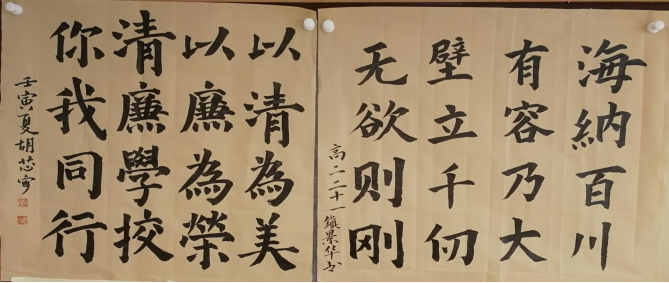 海納百川
有容乃大
壁立千仞
无欲则刚
高一二十一
以清為美
以廉為榮
清廉學校
你我同行
壬寅夏胡芯